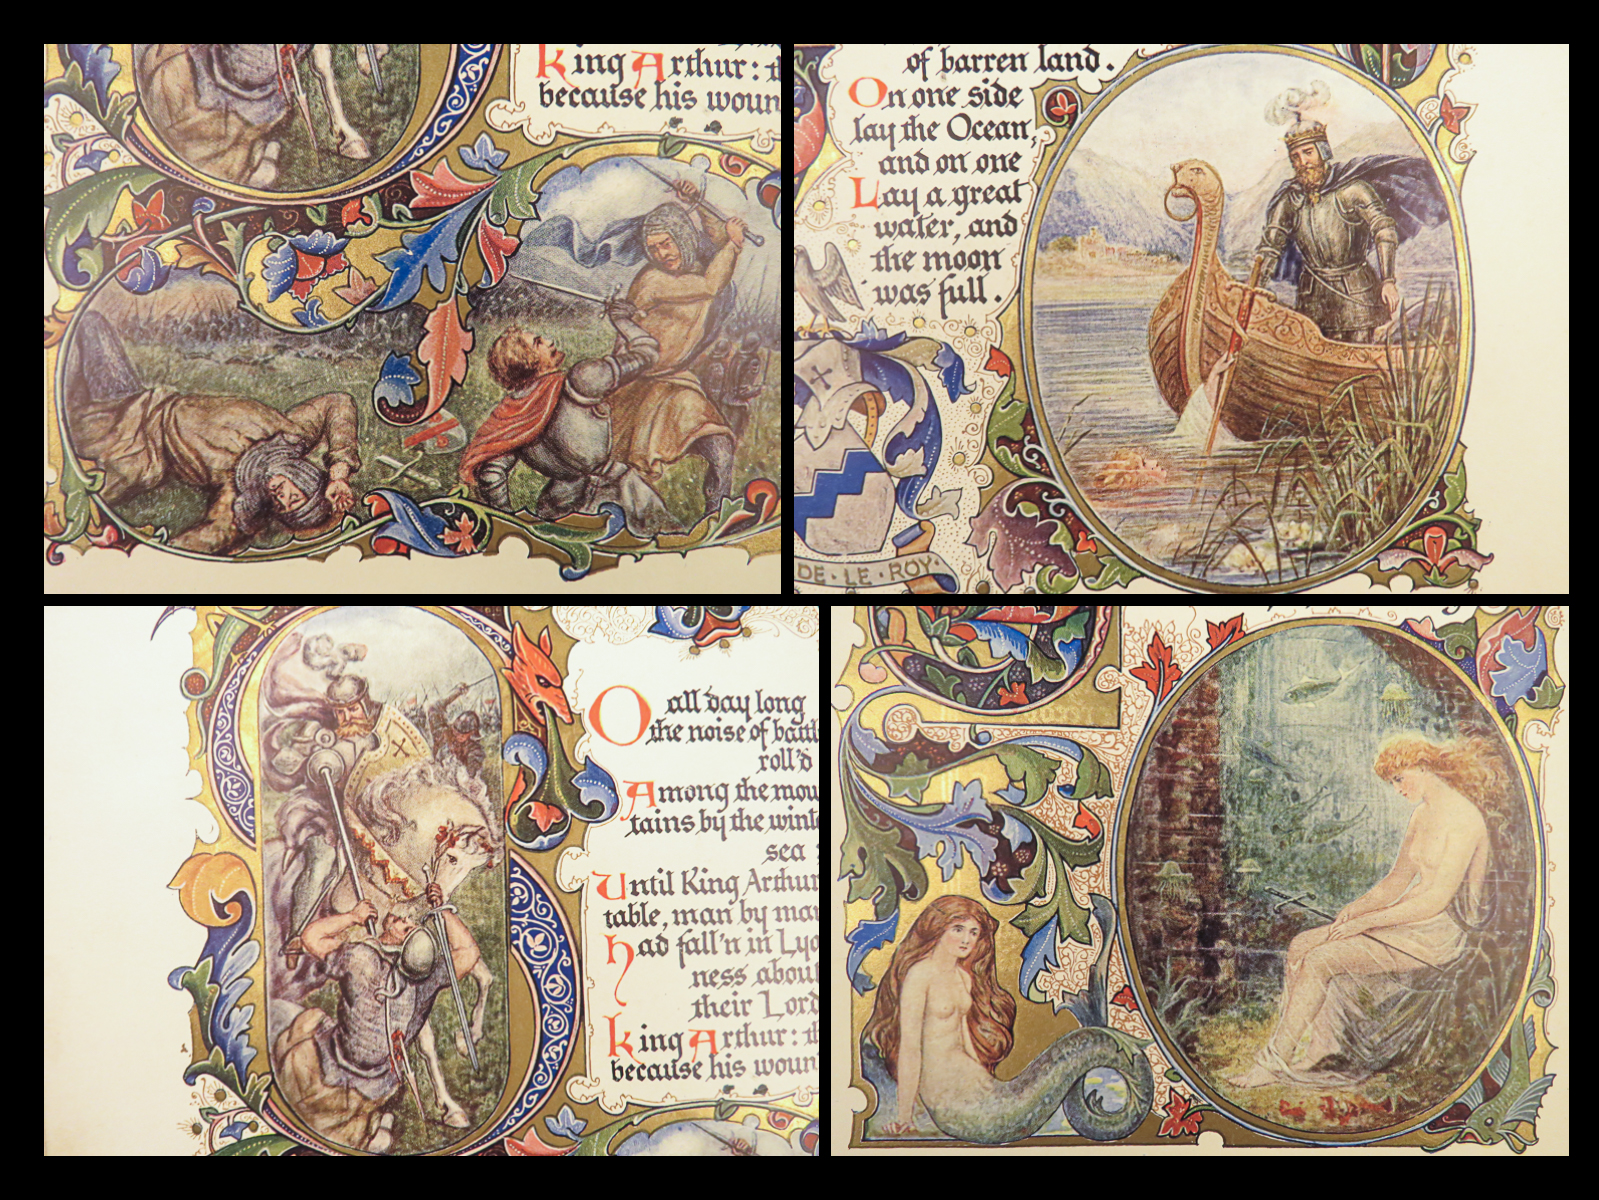 King Arthur:
because his
of barren land.
On one side
lay the Ocean,
and on one
Lay a great
water, and
the moon
was full.
DE·LE·ROY·
O all day long
the noise of
roll'd
Among the
tains by the
sea
Until King Arthur
table, man by
had fall'n in
ness
their
King Arthur:
because his